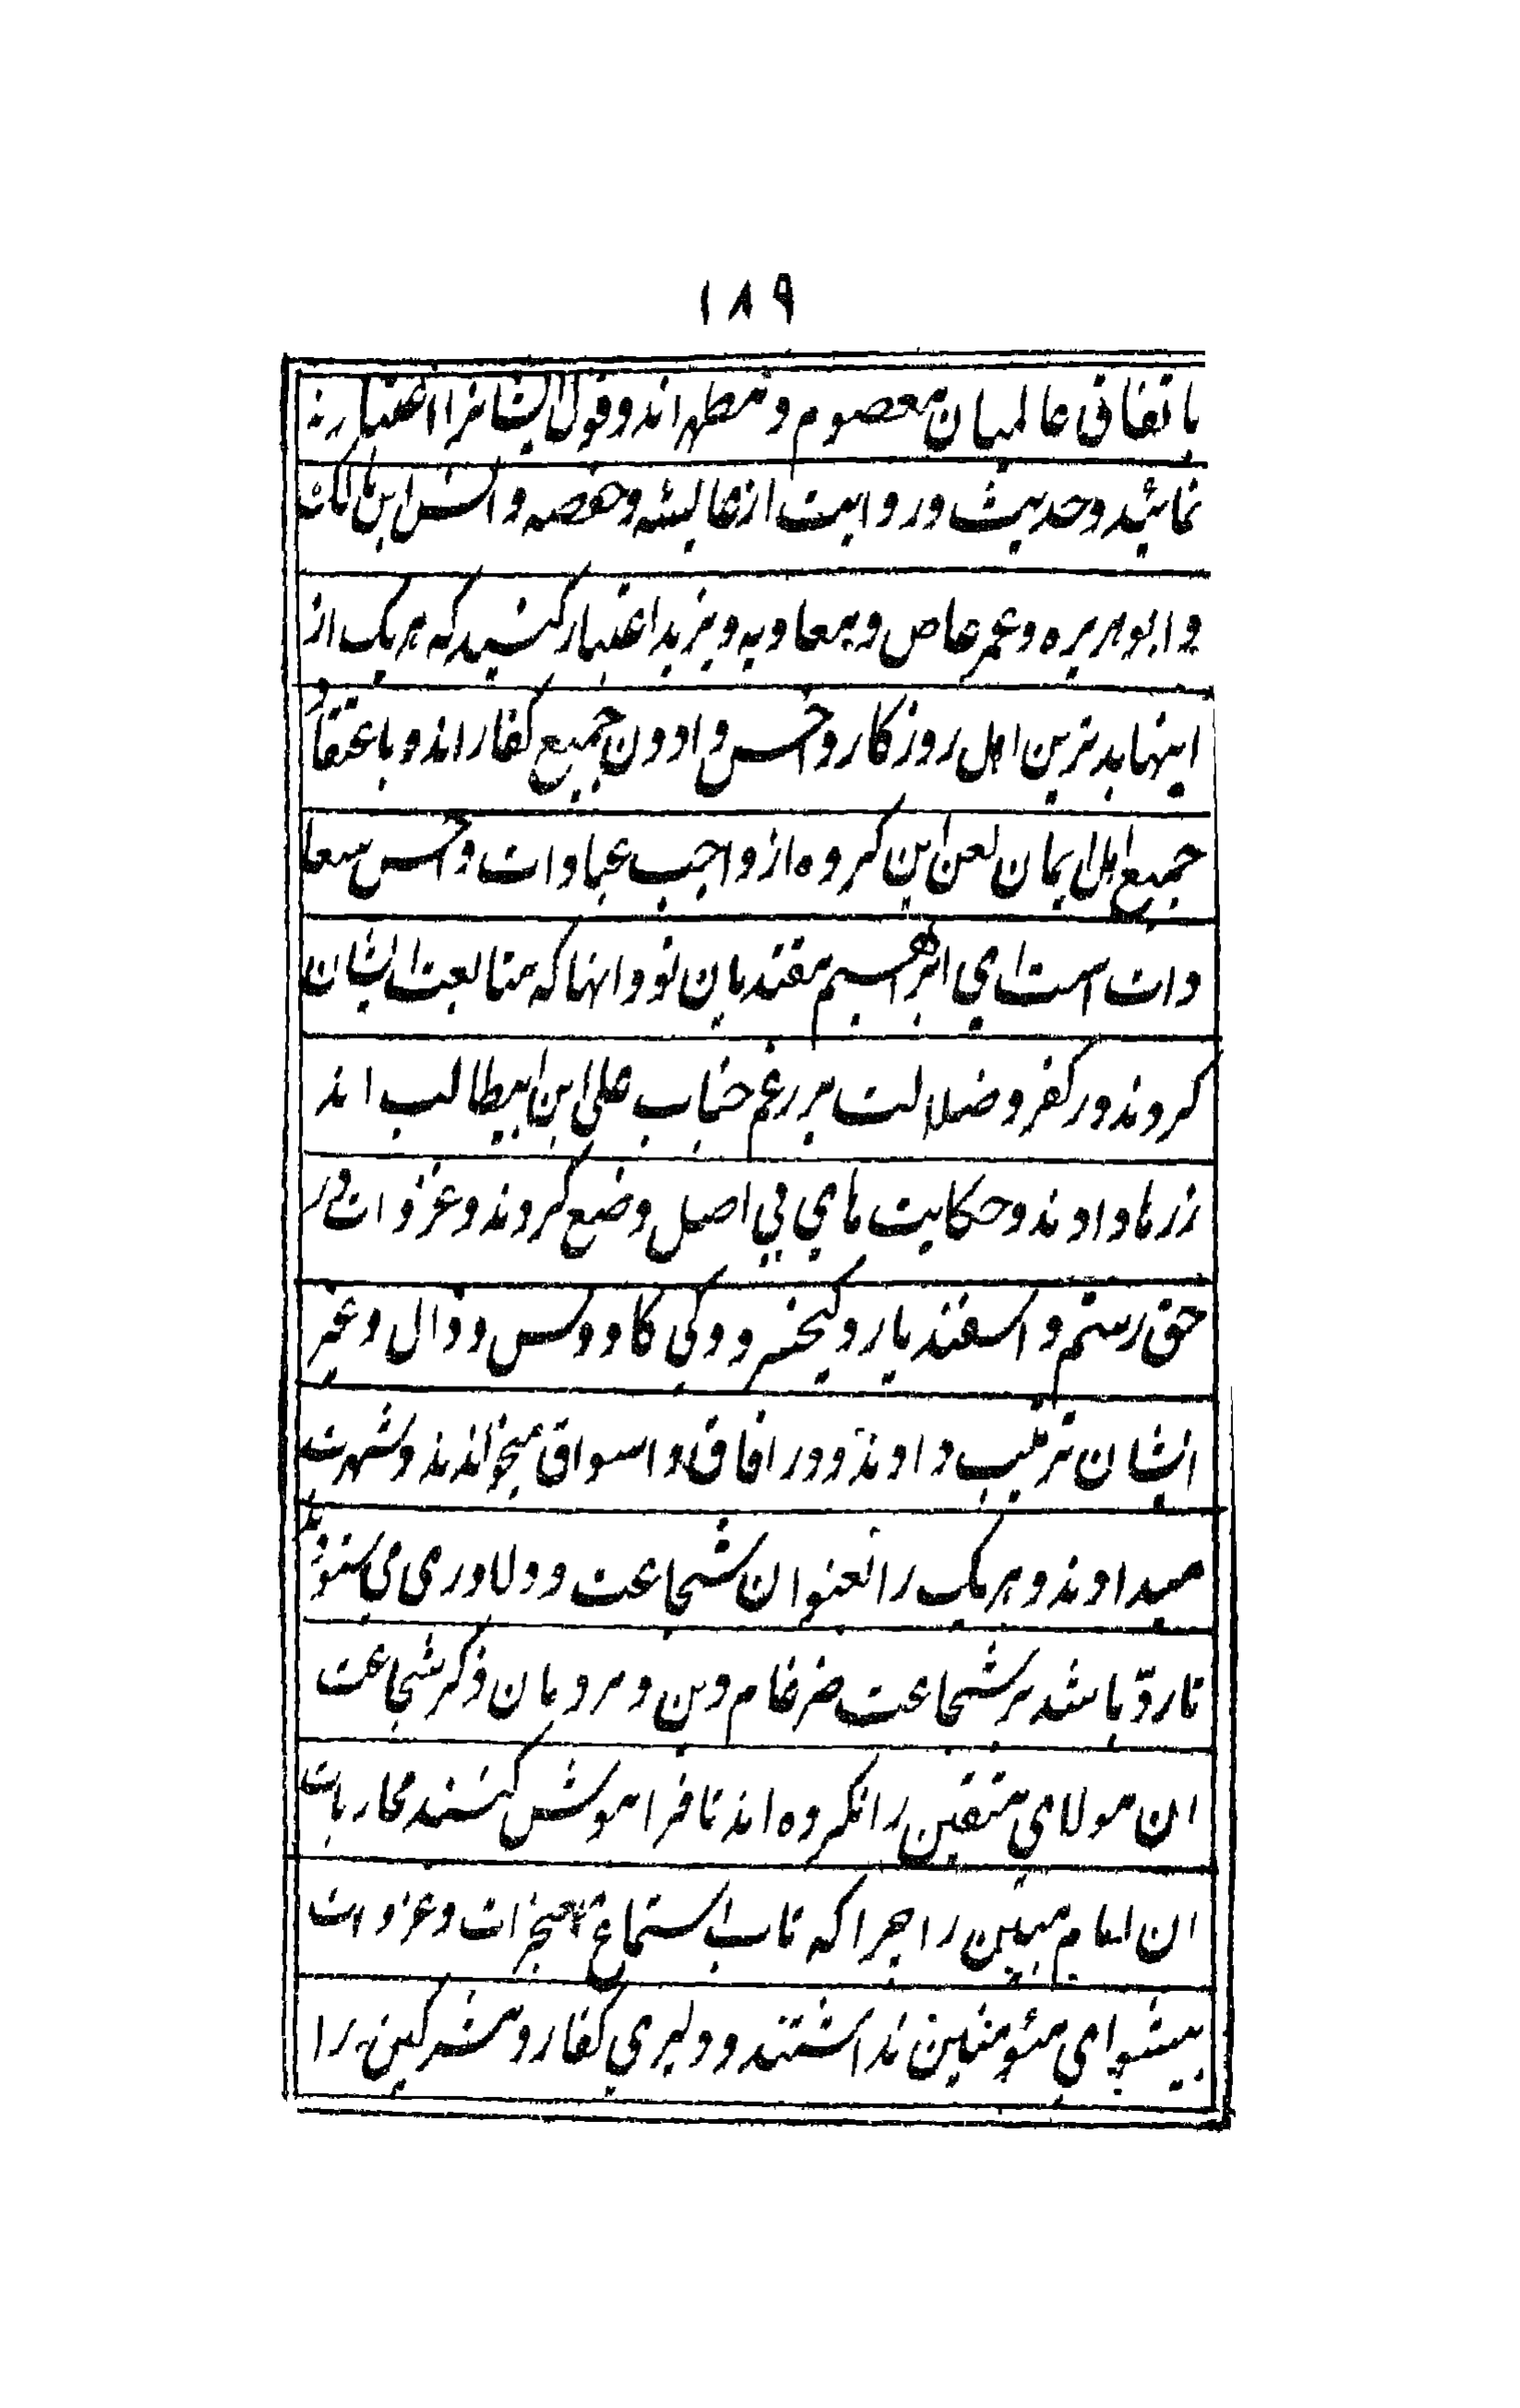 ۱۸۹
باتفاق عالمیان معصوم و مطهراند و قول ایشانرا اعتبار نه
نمائید و حدیث و روایت از عایشه و حفصه و انس ابن مالک
و ابو هریره و عمر عاص و معاویه و یزید اعتبار کنید که هر یک از
اینها بدترین اهل روزکار و اخس و ادون جمیع کفار اند و باعتقاد
جمیع اهل ایمان لعن این کروه از واجب عبادات و احسن سعا
دات است ای ابرهیم مقتدیان تو و انها که متابعت ایشان
کردند در کفر و ضلالت بر رغم جناب علی ابن ابیطالب اند
زرها دادند و حکایت های بی اصل وضع کردند و غزوات در
حق رستم و اسفندیار و کیخسرو و کی کاووس و زال و غیر
ایشان ترتیب دادند و در افاق و اسواق میخواندند و شهرت
میدادند و هر یک را بعنوان شجاعت و دلاوری می ستودند
تا رد باشد بر شجاعت ضرغام دین و مردمان ذکر شجاعت
ان مولای متقین را نکرده اند تا فراموش کنند محاربات
ان امام مبین را چرا که تاب استماع معجزات و غزوات
پیشوای مئومنین نداشتند و دلیری کفار و مشرکین را